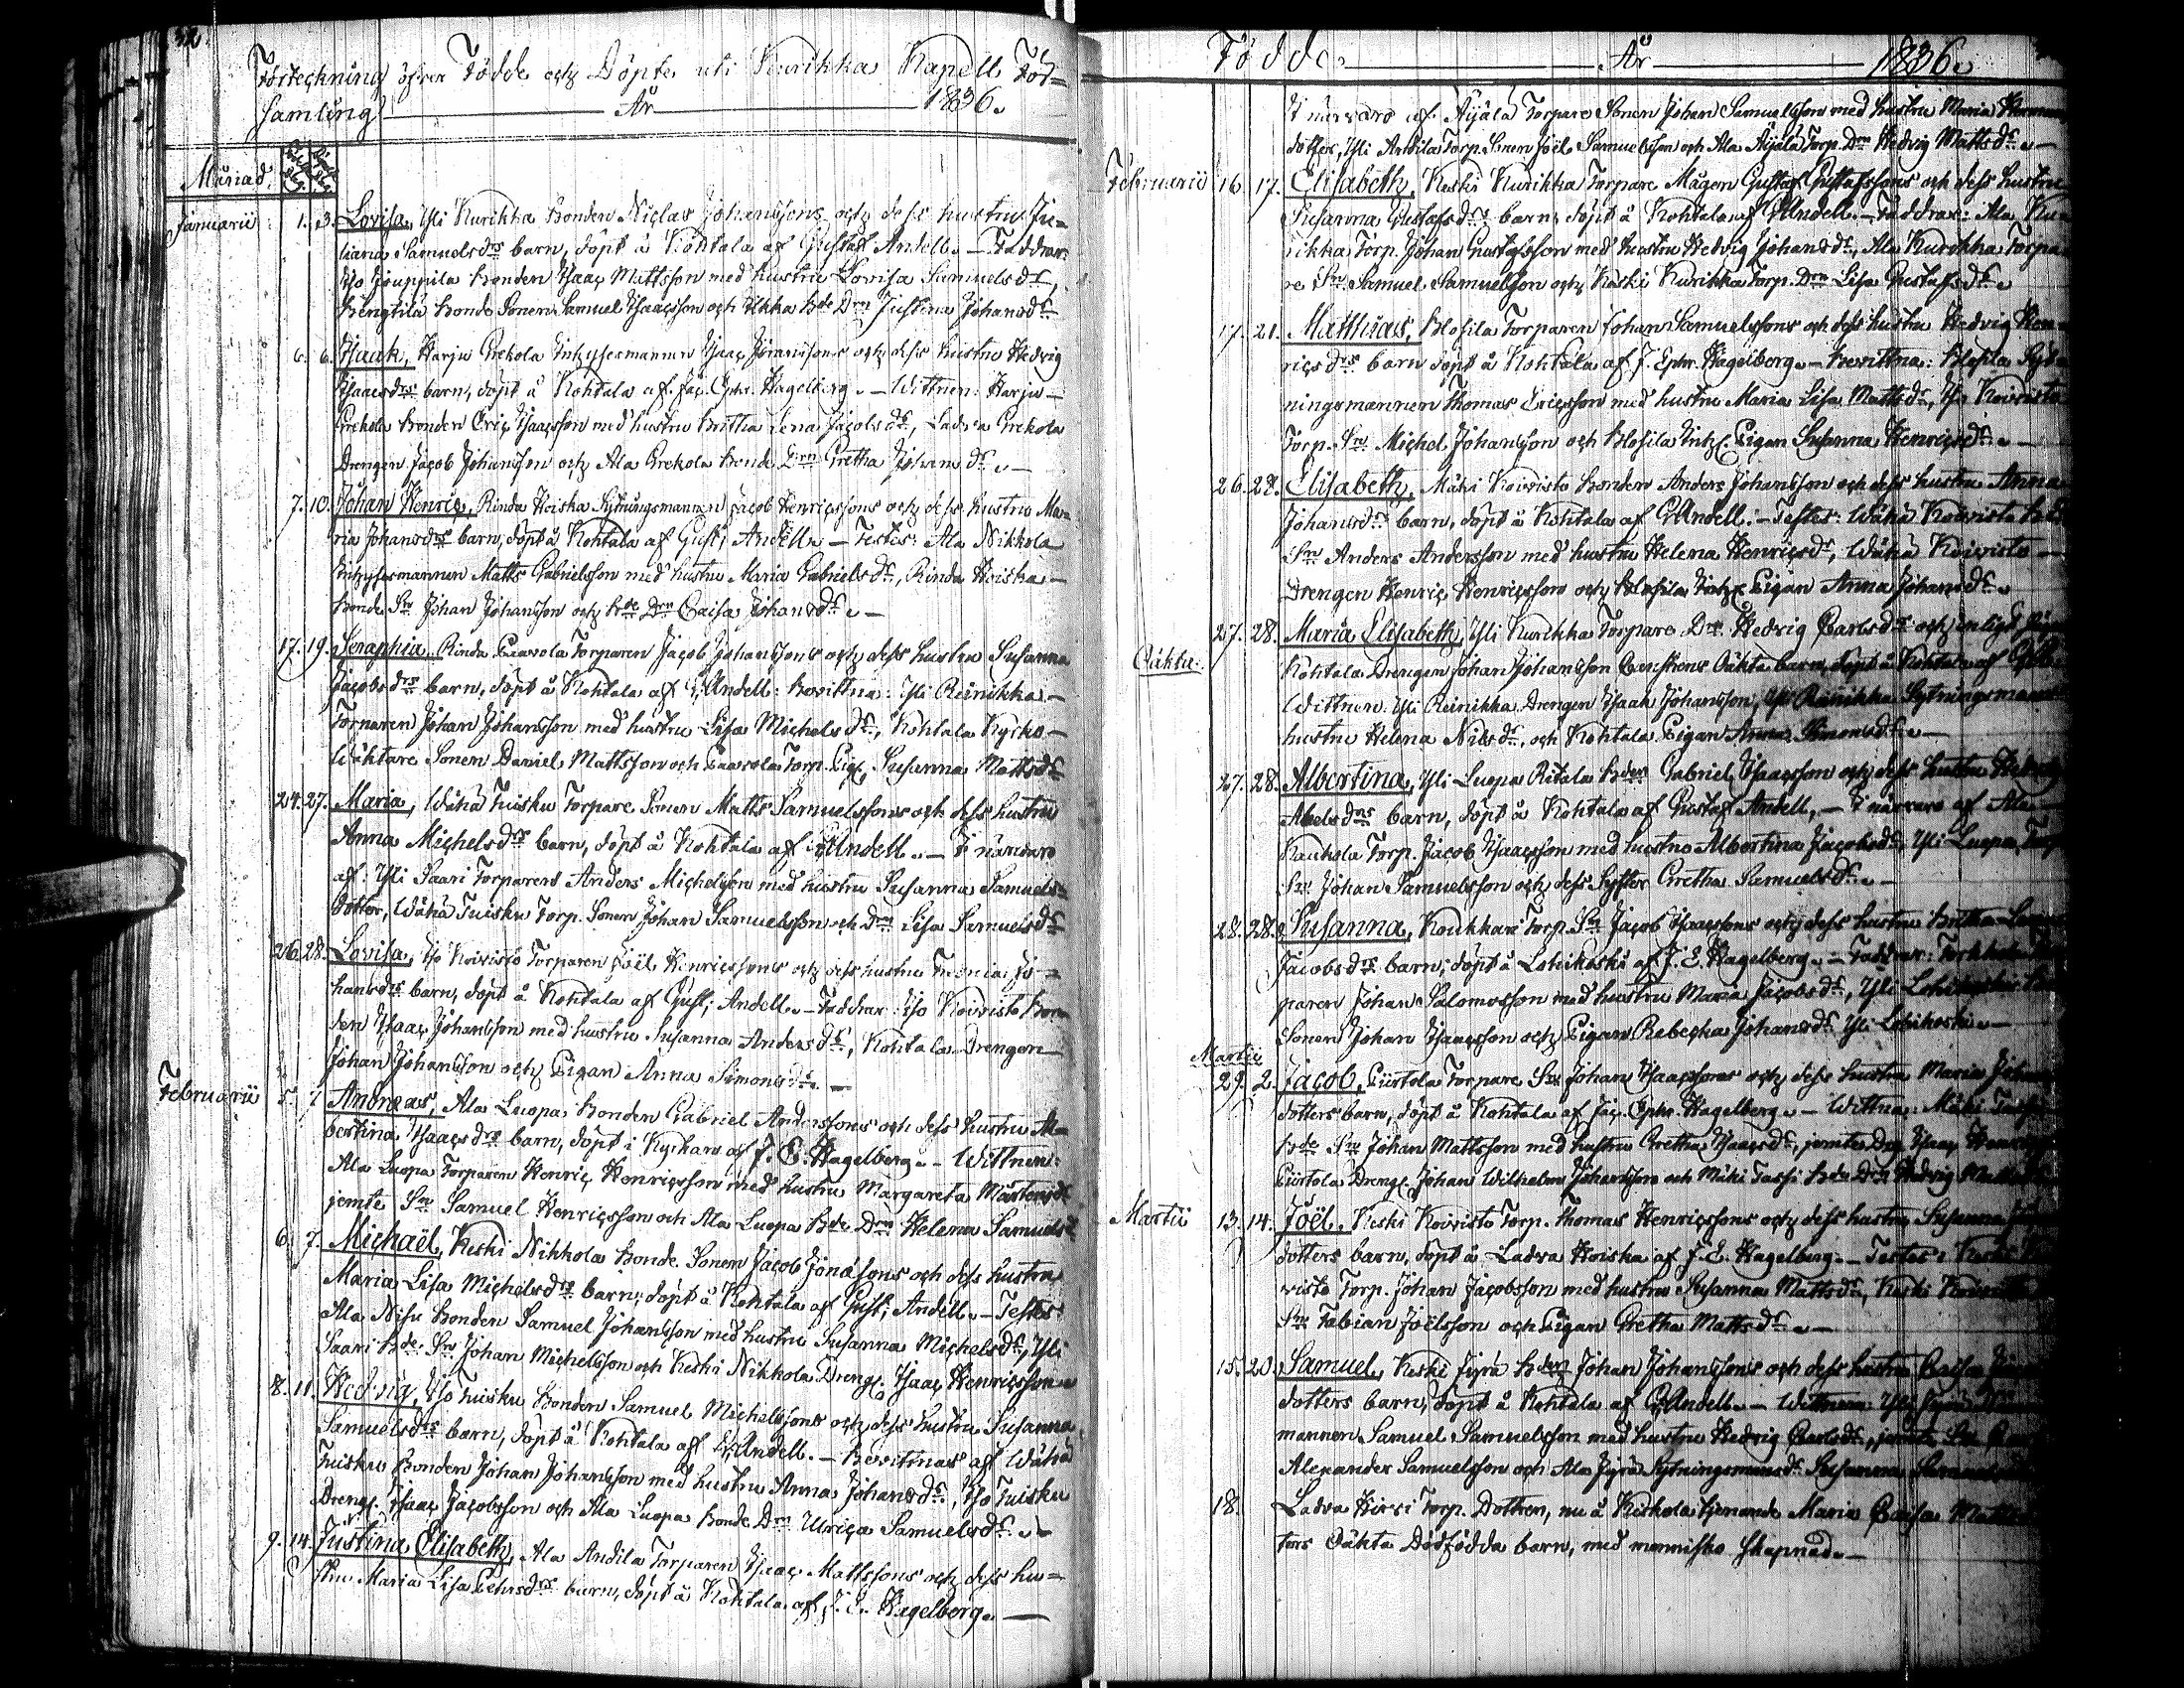 Förtechning öfver Födde och Döpte uti Kurikka Kapell För=
samling År 1836.
Månad.
Januarii 1. 3. Lovisa, Yli Kurikka Bonden Niclas Johanssons och dess hustru Ju=
liana Samuelsdrs barn, döpt å Kohtala af Gustaf Andell. — Faddrar:
Iso Jouppila Bonden Isaac Mattsson med hustru Lovisa Samuelsdr,
Bengtilä Bonde Sonen Samuel Isaacsson och Ukka Bde Drn Justina Johansdr
6. 6. Isaak, Harju Grekola Inhysesmannen Isaac Göranssons och dess hustru Hedvig
Isaacsdrs barn, döpt å Kohtala af Jac. Ephr. Hagelberg. — Wittnen: Harju —
Grekola Bonden Eric Isaacsson med hustru Britha Lena Jacobsdr, Ladva Grekola
Drengen Jacob Johansson och Ala Grekola Bonde Drn Gretha Johansdr. —
7. 10. Johan Henric, Rinda Hoiska Sytningsmannen Jacob Henricssons och dess hustru Ma=
ria Johansdrs barn, döpt å Kohtala af Gust; Andell. — Testes: Ala Nikkola
Inhysesmannen Matts Gabrielsson med hustru Maria Gabrielsdr, Rinda Hoiska —
Bonde Sn Johan Johansson och Bde Drn Caisa Johansdr. —
17. 19. Seraphia, Rinda Paavola Torparen Jacob Johanssons och dess hustru Susanna
Jacobsdrs barn, döpt å Kohtala af G. Andell: Bevittna: Yli Reinikka —
Torparen Johan Johansson med hustru Lisa Michelsdr, Kohtala Kyrko —
Wäktare Sonen Daniel Mattsson och Paavola Torp. Pig. Susanna Mattsdr
24. 27. Maria, Wähä Tuisku Torpare Sonen Matts Samuelssons och dess hustru
Anna Michelsdrs barn, döpt å Kohtala af G. Andell. — I närvaro
af: Yli Saari Torparen Anders Michelsson med hustru Susanna Samuels=
dotter, Wähä Tuisku Torp. Sonen Johan Samuelsson och Drn Lisa Samuelsdr
26. 28. Lovisa, Iso Koivisto Torparen Joël Henricssons och dess hustru Jo=
hansdrs barn, döpt å Kohtala af Gust; Andell. — Faddrar: Iso Koivisto Bon=
den Isaac Johansson med hustru Susanna Andersdr, Kohtala Drengen
Johan Johansson och Pigan Anna Simonsdr. —
Februarii 5. 7. Andreas, Ala Luopa Bonden Gabriel Anderssons och dess hustru Al=
bertina Isaacsdrs barn, döpt i Kyrkan af J. E. Hagelberg. — Wittnen:
Ala Luopa Torparen Henric Henricsson med hustru Margareta Mårtensdr
jemte Sn Samuel Henricsson och Ala Luopa Bde Drn Helena Samuelsdr
6. 7. Michaël, Keski Nikkola Bonde Sonen Jacob Jonæsons och dess hustru
Maria Lisa Michelsdrs barn; döpt å Kohtala af Gust; Andell. — Testes:
Ala Nisu Bonden Samuel Johansson med hustru Susanna Michelsdr, Yli
Saari Bde. Sn Johan Michelsson och Keski Nikkola Dreng. Isaac Henricsson.
8. 11. Hedvig, Iso Tuisku Bonden Samuel Michelssons och dess hustru Susanna
Samuelsdrs barn, döpt å Kohtala af G. Andell. — Bevittnas af Wähä
Tuisku Bonden Johan Johansson med hustru Anna Johansdr, Iso Tuisku
Dreng. Isaac Jacobsson och Ala Luopa Bonde Drn Ulrica Samuelsdr. —
9. 14. Justina Elisabeth, Ala Andila Torparen Isaac Mattssons och dess hu=
stru Maria Lisa Pehrsdrs barn, döpt å Kohtala af J. E. Hagelberg. —
Födde År 1836.
I närvaro af Äijälä Torpare Sonen Johan Samuelsson med hustru Maria
dotter, Yli Andila Torp. Sonen Joël Samuelsson och Ala Äijälä Torp. Drn Hedvig Mattsdr. —
Februarii 16. 17. Elisabeth, Keski Kurikka Torpare Mågen Gustaf Gustafssons och dess hustru
Susanna Gustafsdrs barn, döpt å Kohtala af G. Andell. — Faddrar: Ala Ku=
rikka Torp. Johan Gustafsson med hustru Hedvig Johansdr, Ala Kurikka Torpa=
re Sn Samuel Samuelsson och Keski Kurikka Torp. Drn Lisa Gustafsdr.
17. 21. Matthias, Blofila Torparen Johan Samuelssons och dess hustru Hedvig Hen=
ricsdrs barn döpt å Kohtala af J. Ephr. Hagelberg. — Bevittna: Blofila Syt=
ningsmannen Thomas Ericsson med hustru Maria Lisa Mattsdr, Iso Koivisto
Torp. Sn Michel Johansson och Blofila Inh. Pigan Susanna Henricsdr. —
26. 27. Elisabeth, Mäki Koivisto Bonden Anders Johansson och dess hustru Anna
Johansdrs barn, döpt å Kohtala af G. Andell. — Testes: Wähä Koivisto
Sn Anders Andersson med hustru Helena Henricsdr, Wähä Koivisto —
Drengen Henric Henricsson och Blofila Inh. Pigan Anna Johansdr.
27. 28. Maria Elisabeth, Yli Kurikka Torpare Drn Hedvig Carlsdr och enligt
Oäkta: Kohtala Drengen Johan Johansson Oäkta barn, döpt å Kohtala af
Wittnen: Yli Reinikka Drengen Isaak Johansson, Yli Reinikka Sytningsmans
hustru Helena Nilsdr, och Kohtala Pigan Anna Simonsdr. —
27. 28. Albertina, Yli Luopa Ritala Bden Gabriel Isaacsson och dess hustru
Abelsdrs barn, döpt å Kohtala af Gustaf Andell, — I närvaro af Ala
Kauhola Torp. Jacob Isaacsson med hustru Albertina Jacobsdr, Yli Luopa
Sn Johan Samuelsson och dess Syster Gretha Samuelsdr. —
28. 28. Susanna, Koukkari Torp. Sn Jacob Isaacssons och dess hustru Britha
Jacobsdrs barn; döpt å Lohikoski af J. E. Hagelberg. — Faddrar:
paren Johan Salomosson med hustru Maria Jacobsdr, Yli
Sonen Johan Isaacsson och Pigan Rebecka Johansdr Yli Lohikoski. —
Martii
29. 2. Jacob, Piirtola Torpare Sn Johan Isaacssons och dess hustru Maria
dotters barn, döpt å Kohtala af Jac. Ephr. Hagelberg. — Wittna: Mäki
Bde Sn Johan Mattsson med hustru Gretha Isaacsdr, jemte Dre Isaac
Piirtola Dreng. Johan Wilhelm Johansson och Mäki Tassi Bde Drn Hedvig
Martii 13. 14. Joël, Keski Koivisto Torp. Thomas Henricssons och dess hustru Susanna
dotters barn, döpt å Ladva Hoiska af J. E. Hagelberg. — Testes: Keski
visto Torp. Johan Jacobsson med hustru Susanna Mattsdr, Keski
Sn Fabian Joëlsson och Pigan Gretha Mattsdr. —
15. 20. Samuel, Keski Jyrä Bden Johan Johanssons och dess hustru Caisa
dotters barn, döpt å Kohtala af G. Andell. — Wittnen: Yli
mannen Samuel Samuelsson med hustru Hedvig Carlsdr, jemte
Alexander Samuelsson och Ala Jyrä Sytningsmansdr Susanna
18. Ladva Hirsi Torp. Dottren, nu å Keskola tjenande Maria Caisa
ters Oäkta Dödfödda barn, med mennisko skapnad. —